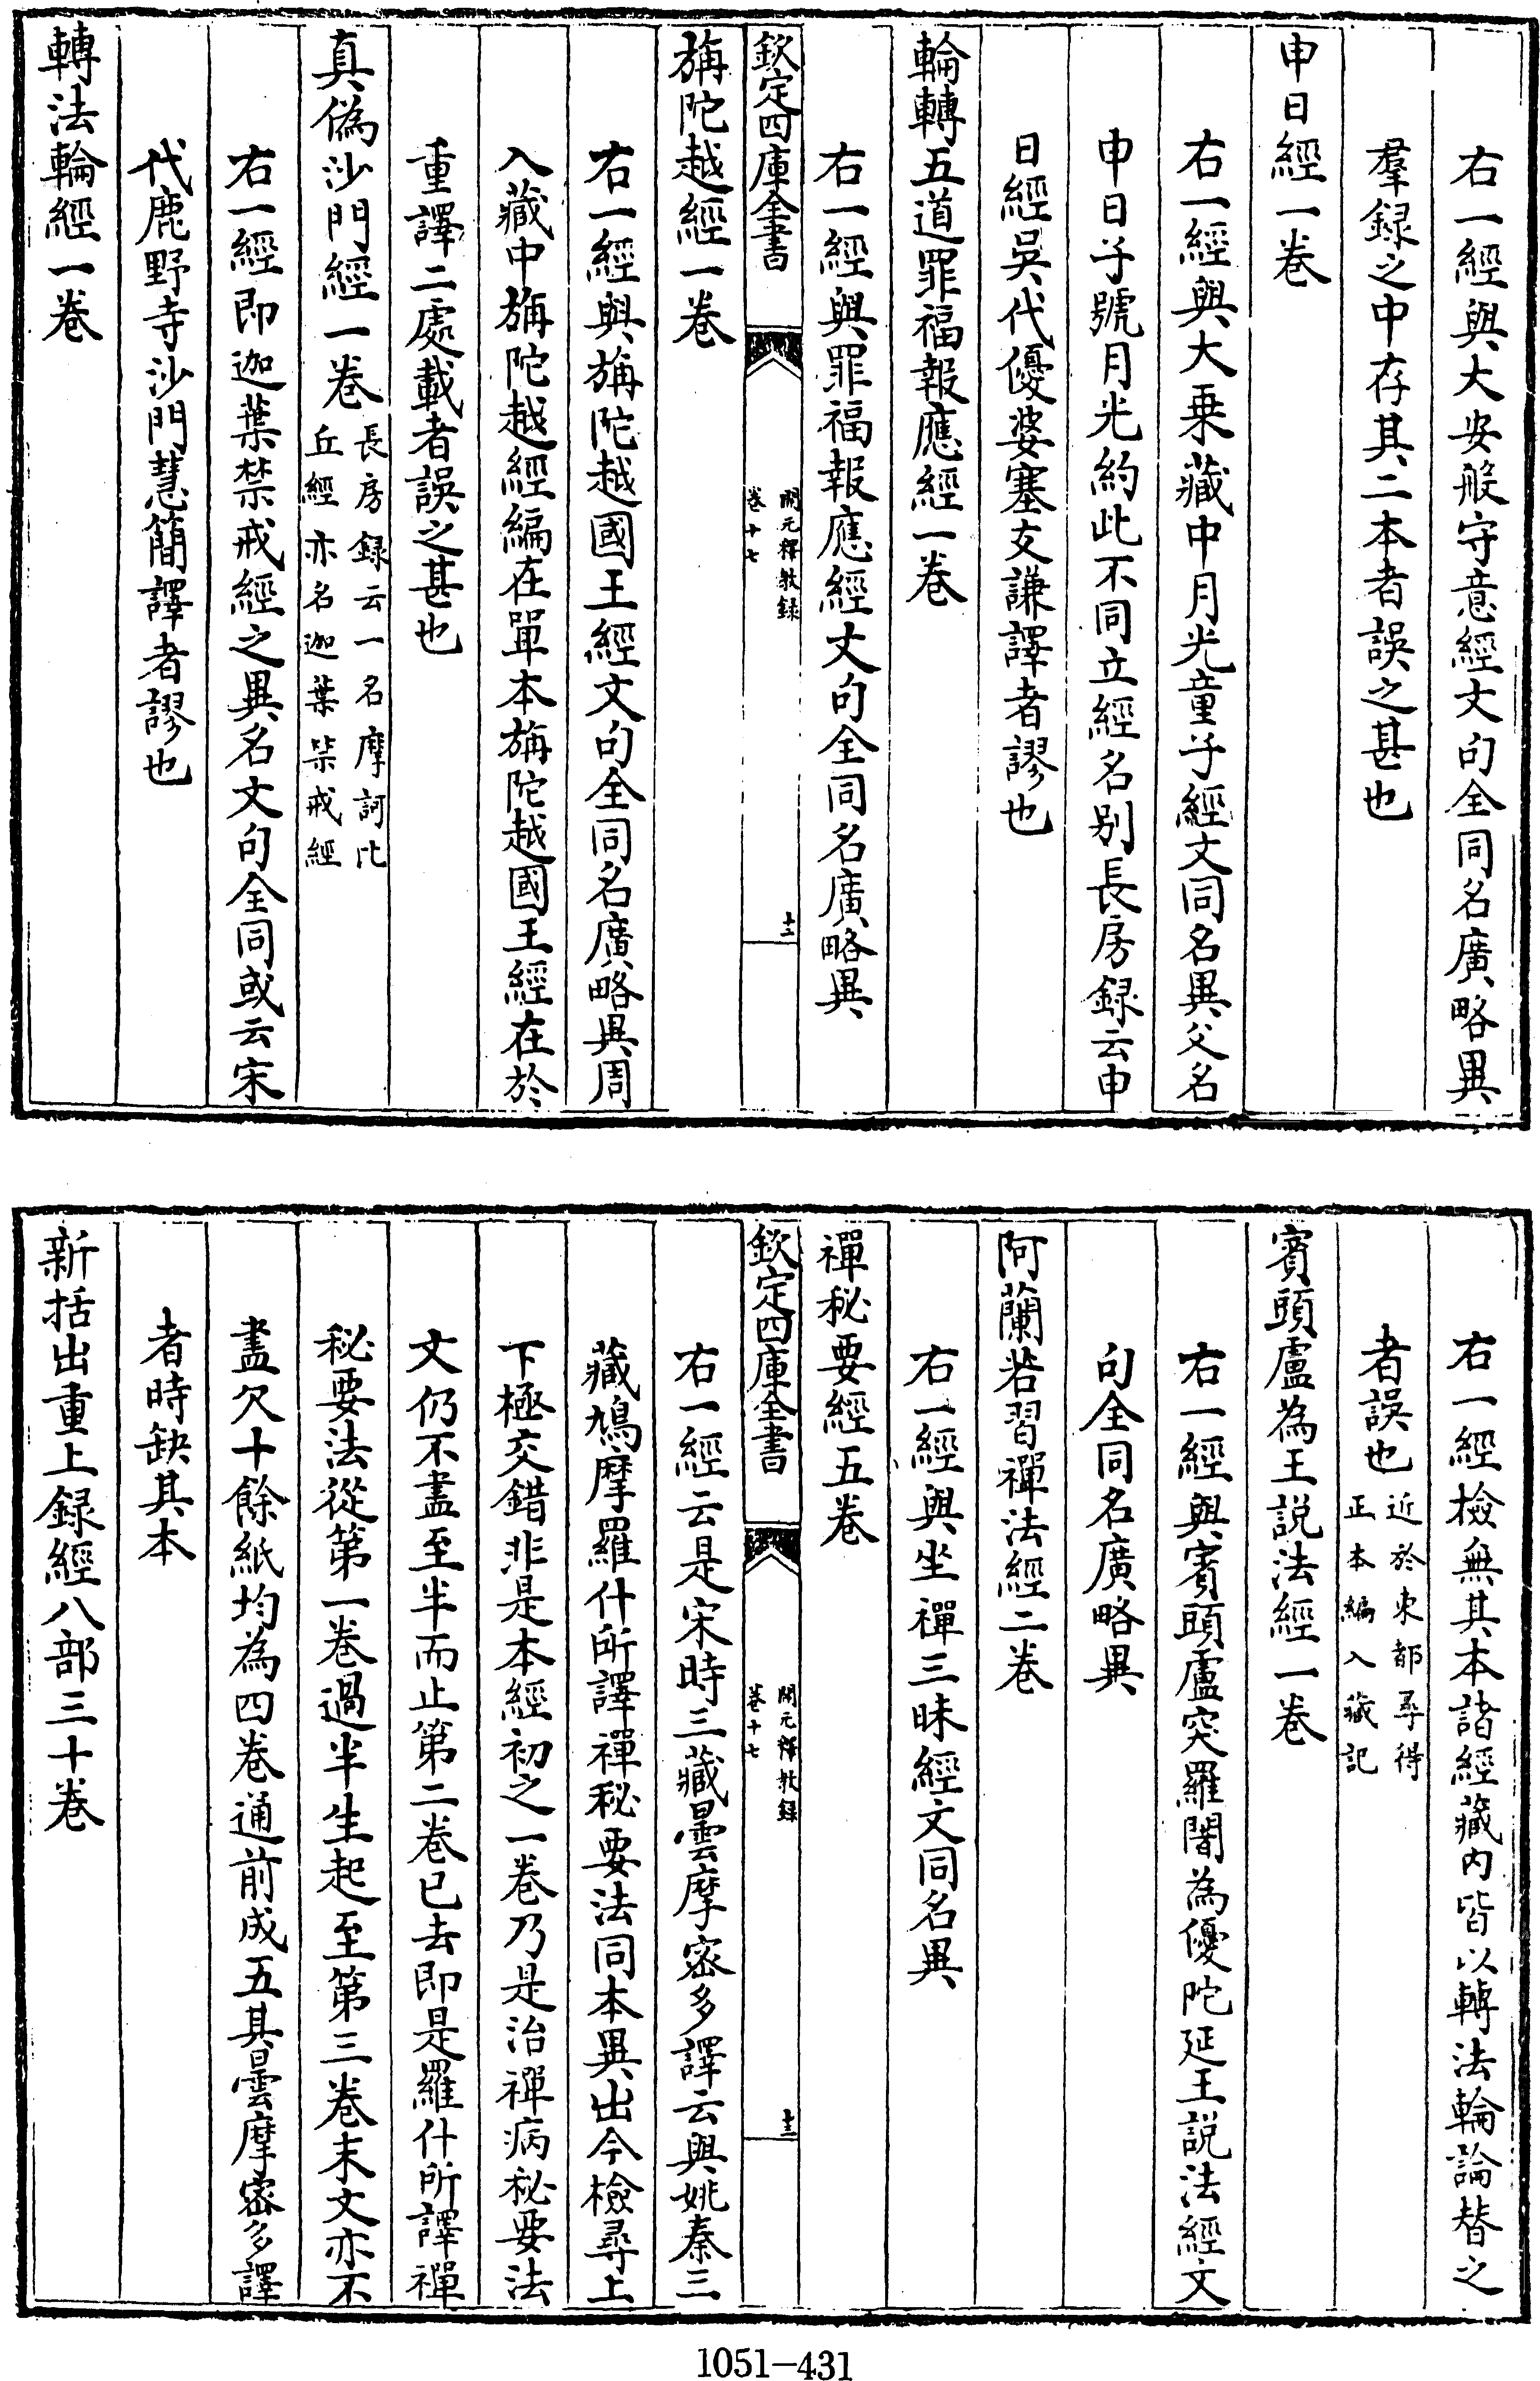 右一經與大安般守意經文句全同名廣略異
羣録之中存其二本者誤之甚也
申日經一卷
右一經與大乗藏中月光童子經文同名異父名
申日子號月光約此不同立經名别長房録云申
日經吳代優婆塞支謙譯者謬也
輪轉五道罪福報應經一卷
右一經與罪福報應經文句全同名廣略異
欽定四庫全書
開元釋教録
卷十七
十二
旃陀越經一卷
右一經與旃陀越國王經文句全同名廣略異周
入藏中旃陀越經編在單本旃陀越國王經在於
重譯二處載者誤之甚也
真偽沙門經一卷長房録云一名摩訶比
丘經亦名迦葉禁戒經
右一經即迦葉禁戒經之異名文句全同或云宋
代鹿野寺沙門慧簡譯者謬也
轉法輪經一卷
右一經檢無其本諸經藏内皆以轉法輪論替之
者誤也近於東都尋得
正本編入藏記
賓頭盧為王説法經一卷
右一經與賓頭盧突羅闍為優陀延王説法經文
句全同名廣略異
阿蘭若習禪法經二卷
右一經與坐禪三昧經文同名異
禪秘要經五卷
欽定四庫全書
開元釋教録
卷十七
十三
右一經云是宋時三藏曇摩宻多譯云與姚秦三
藏鳩摩羅什所譯禪秘要法同本異出今檢尋上
下極交錯非是本經初之一卷乃是治禪病秘要法
文仍不盡至半而止第二卷已去即是羅什所譯禪
秘要法從第一卷過半生起至第三卷末文亦不
盡欠十餘紙均為四卷通前成五其曇摩宻多譯
者時缺其本
新括出重上録經八部三十卷
1051-431